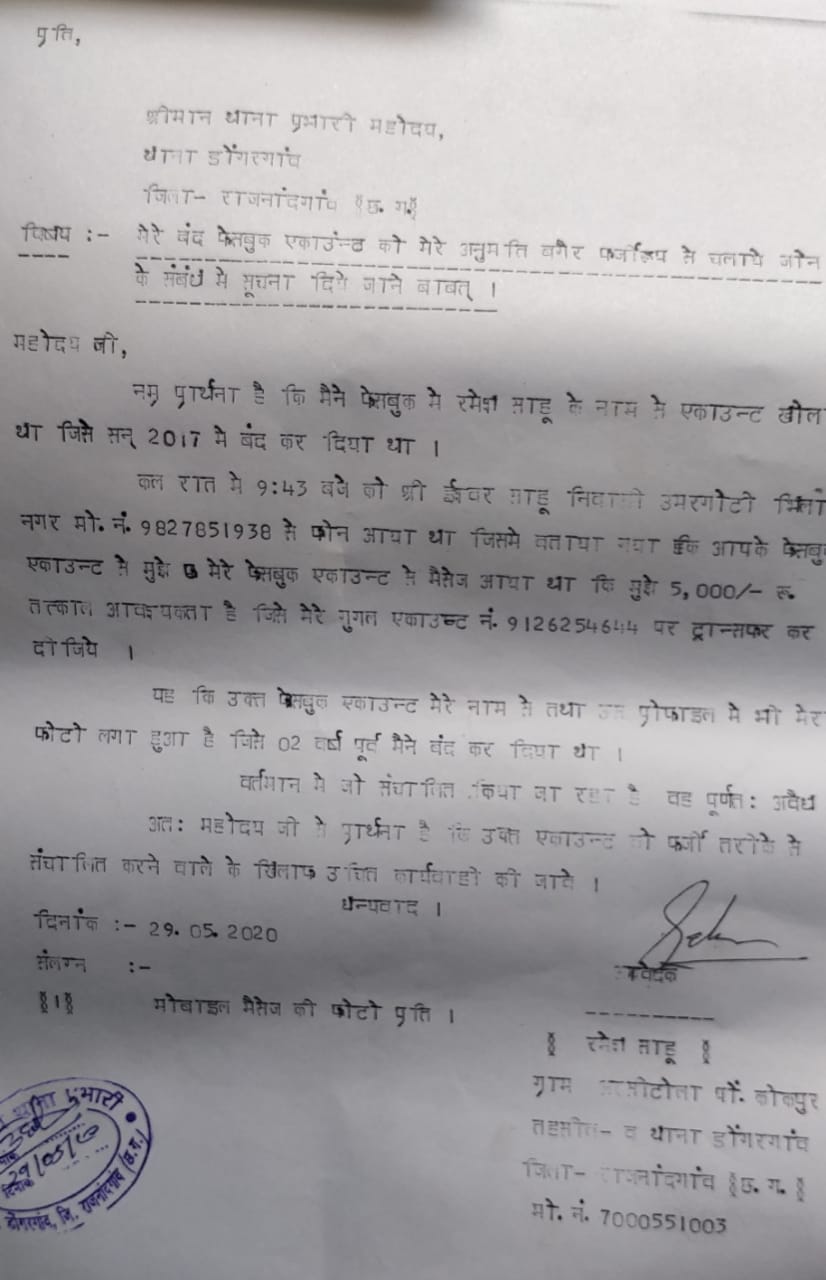 प्रति,
श्रीमान थाना प्रभारी महोदय,
थाना डोंगरगांव
जिला- राजनांदगांव §छ. ग.§
विषय :- मेरे बंद फेसबुक एकाउंन्ट को मेरे अनुमति बगैर फर्जीरूप से चलाये जाने
के संबंध मे सूचना दिये जाने बाबत् ।
महोदय जी,
नम्र प्रार्थना है कि मैने फेसबुक मे रमेश साहू के नाम से एकाउन्ट खोला
था जिसे सन् 2017 मे बंद कर दिया था ।
कल रात मे 9:43 बजे को श्री ईश्वर साहू निवासी उमरगोटी
नगर मो. नं. 9827851938 से फोन आया था जिसमे बताया गया कि आपके फेसबुक
एकाउन्ट से मुझे मेरे फेसबुक एकाउन्ट से मैसेज आया था कि मुझे 5,000/- रू.
तत्काल आवश्यकता है जिसे मेरे गुगल एकाउन्ट नं. 9126254644 पर ट्रान्सफर कर
दीजिये ।
यह कि उक्त फेसबुक एकाउन्ट मेरे नाम से तथा उस प्रोफाइल मे भी मेरा
फोटो लगा हुआ है जिसे 02 वर्ष पूर्व मैने बंद कर दिया था ।
वर्तमान मे जो संचालित किया जा रहा है वह पूर्णत: अवैध
अत: महोदय जी से प्रार्थना है कि उक्त एकाउन्ट को फर्जी तरीके से
संचालित करने वाले के खिलाफ उचित कार्यवाही की जावे ।
धन्यवाद ।
दिनांक :- 29.05.2020
आवेदक
संलग्न :-
§1§ मोबाइल मैसेज की फोटो प्रति ।
§ रमेश साहू §
ग्राम पो. कोकपुर
तहसील- व थाना डोंगरगांव
जिला- राजनांदगांव §छ. ग.§
मो. नं. 7000551003
थाना प्रभारी
दिनांक 29/05/20
डोंगरगांव, जि. राजनांदगांव (छ.ग.)